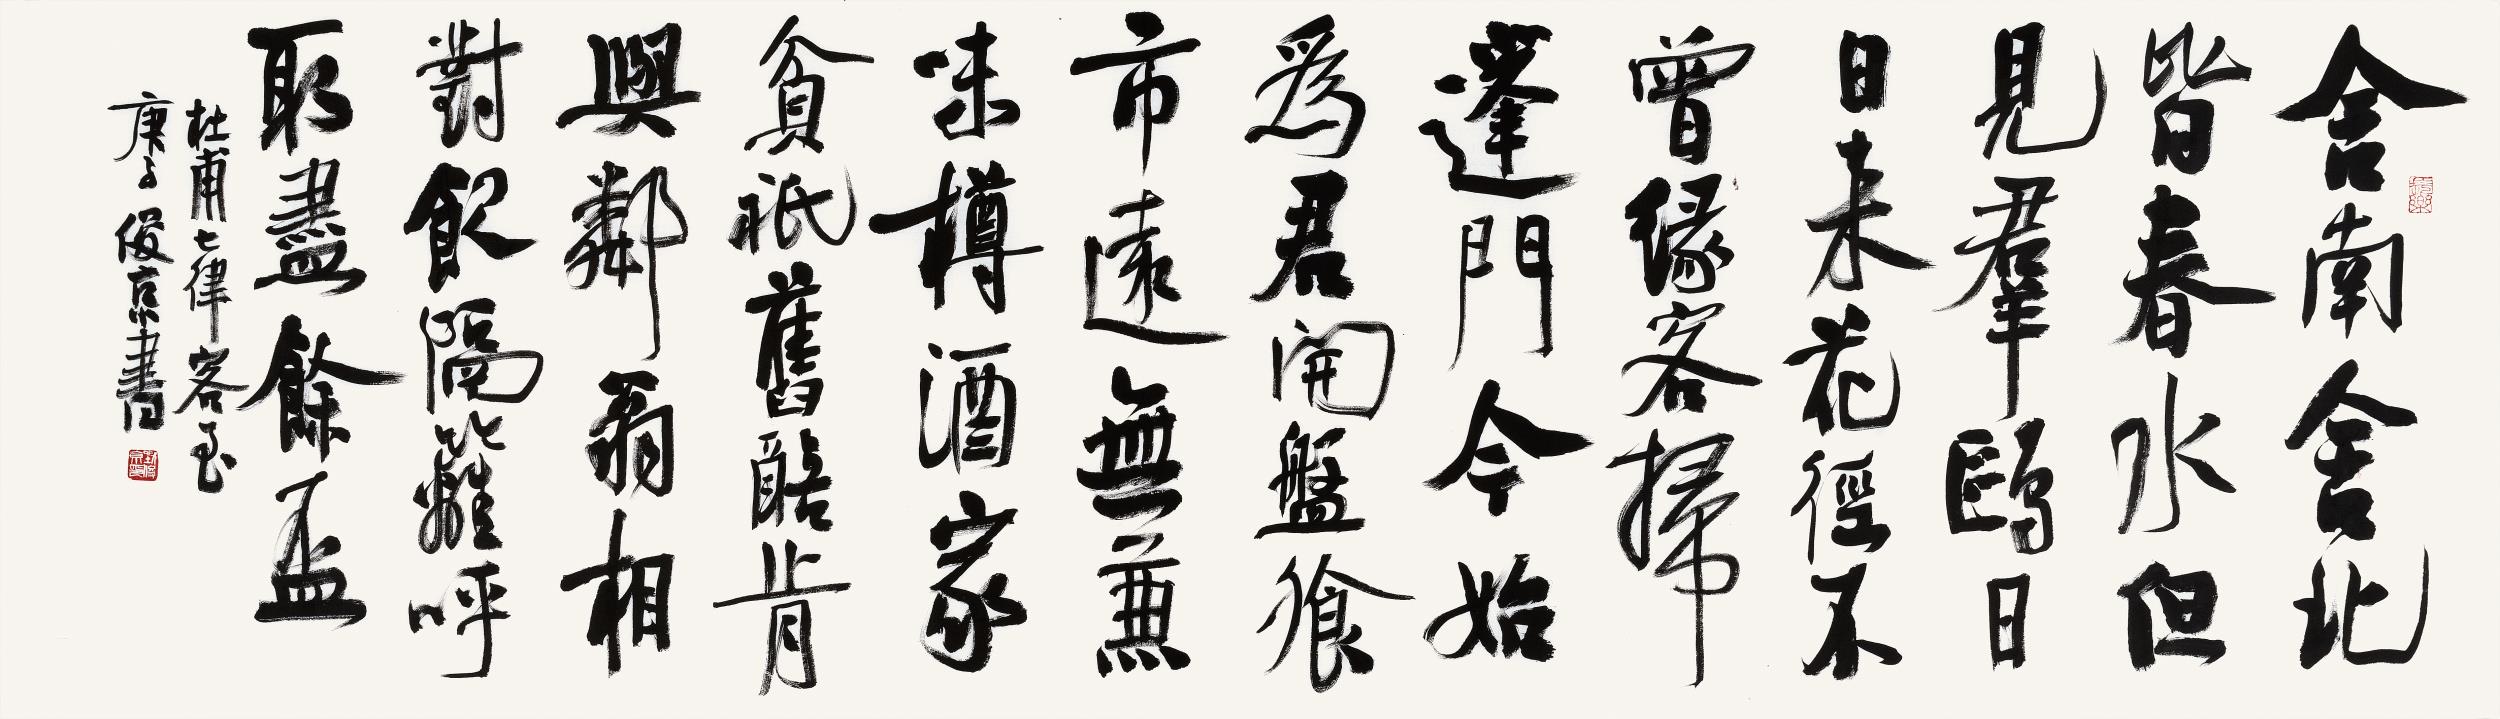 舍南舍北
皆春水但
見羣鷗日
日来花徑不
曾緣客掃
蓬門今始
為君開盤飧
市遠無兼
味樽酒家
貧祇舊醅肯
與鄰翁相
對飲隔籬呼
取盡餘盃
杜甫七律客至
庚子俊京書